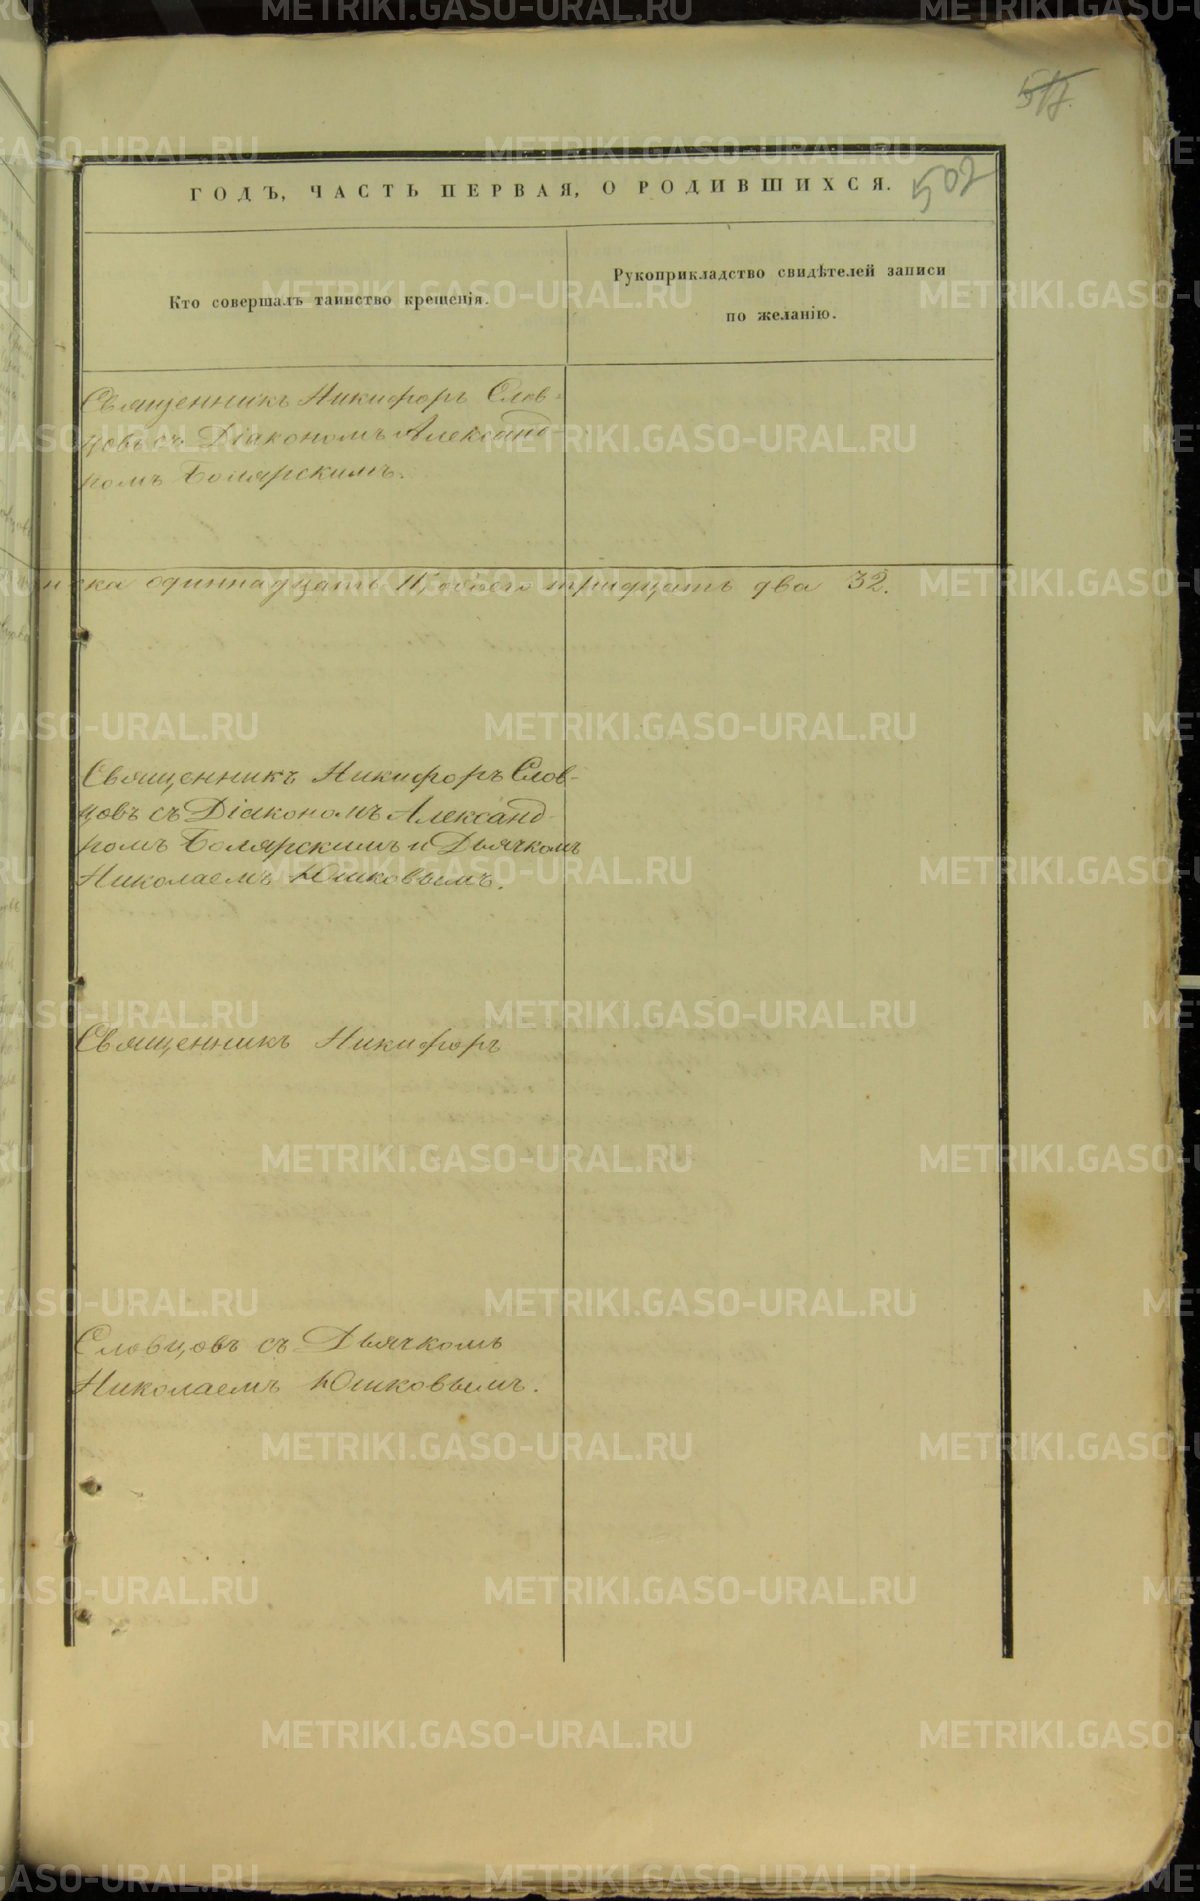 517.
ГОДЪ, ЧАСТЬ ПЕРВАЯ, О РОДИВШИХСЯ.
502
Кто совершалъ таинство крещенія.
Рукоприкладство свидѣтелей записи
по желанію.
Священникъ Никифоръ Слов-
цовъ съ Діакономъ Александ-
ромъ Болярскимъ.
одиннадцать 11, обоего тридцать два 32.
Священникъ Никифоръ Слов-
цовъ съ Діакономъ Александ-
ромъ Болярскимъ и Дьячкомъ
Николаемъ Юшковымъ.
Священникъ Никифоръ
Словцовъ съ Дьячкомъ
Николаемъ Юшковымъ.
METRIKI.GASO-URAL.RU